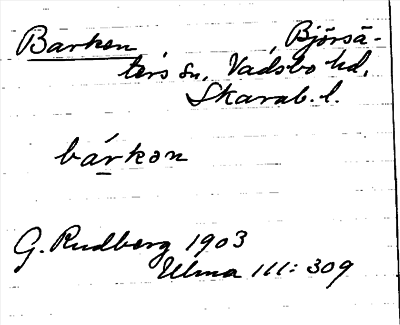 Barken Björsä-
ters sn, Vadsbo hd,
Skarab. l.
bárkən
G. Rudberg 1903
Ulma 111: 309